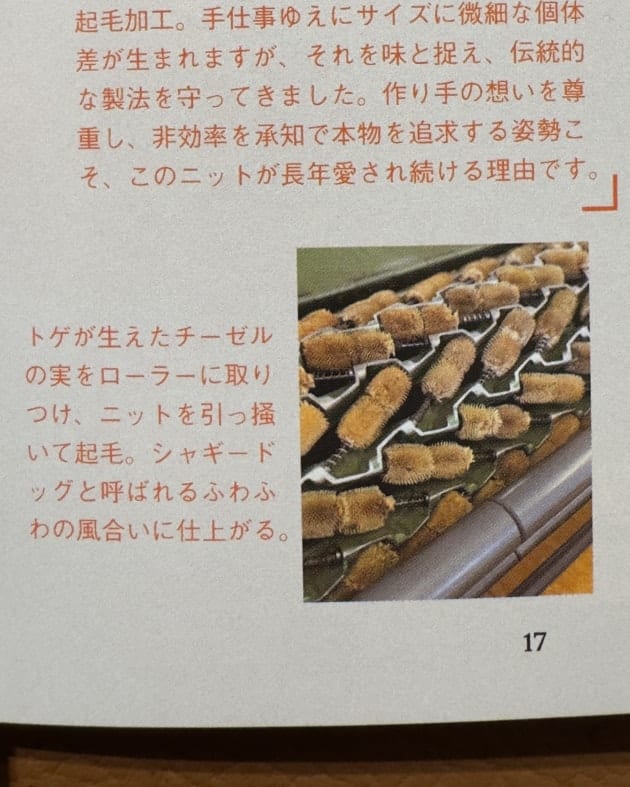 起毛加工。手仕事ゆえにサイズに微細な個体
差が生まれますが、それを味と捉え、伝統的
な製法を守ってきました。作り手の想いを尊
重し、非効率を承知で本物を追求する姿勢こ
そ、このニットが長年愛され続ける理由です。
トゲが生えたチーゼル
の実をローラーに取り
つけ、ニットを引っ掻
いて起毛。シャギード
ッグと呼ばれるふわふ
わの風合いに仕上がる。
17